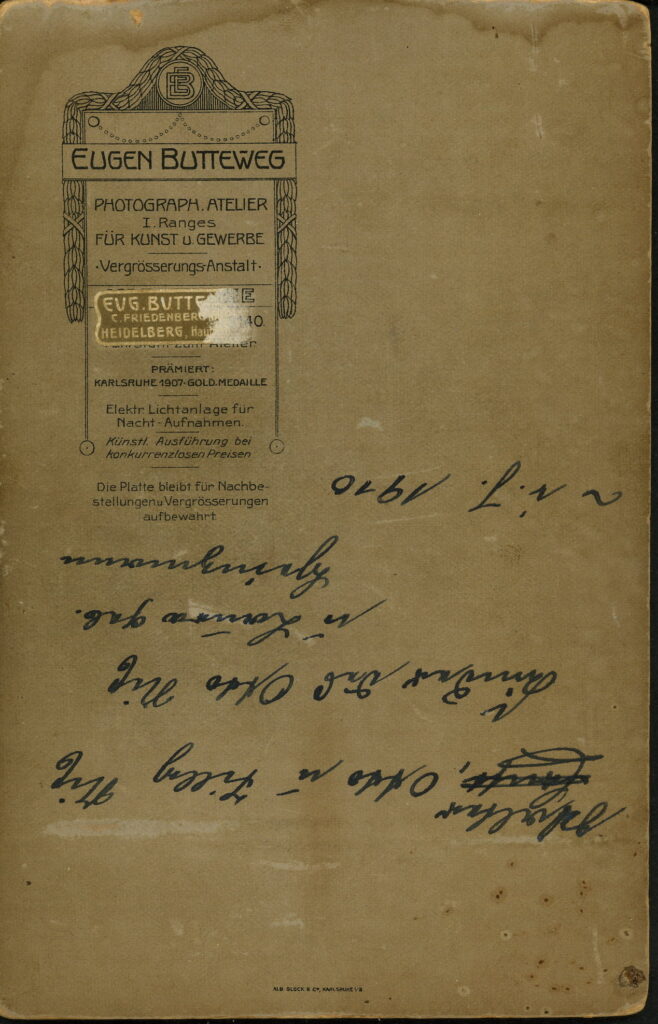 EB
EUGEN BUTTEWEG
PHOTOGRAPH. ATELIER
I. Ranges
FÜR KUNST u. GEWERBE
·Vergrösserungs-Anstalt·
EUG. BUTTE
C. FRIEDENBERG
HEIDELBERG, Hau
140
zum Atelier
PRÄMIERT:
KARLSRUHE 1907·GOLD. MEDAILLE
Elektr. Lichtanlage für
Nacht-Aufnahmen.
Künstl. Ausführung bei
konkurrenzlosen Preisen
Die Platte bleibt für Nachbe-
stellungen u. Vergrösserungen
aufbewahrt
Walter
Otto u Tilly
Kinder des Otto
u Laura geb.
Heinzmann
~ i. J. 1910
ALB. GLOCK & Cº, KARLSRUHE i/B.